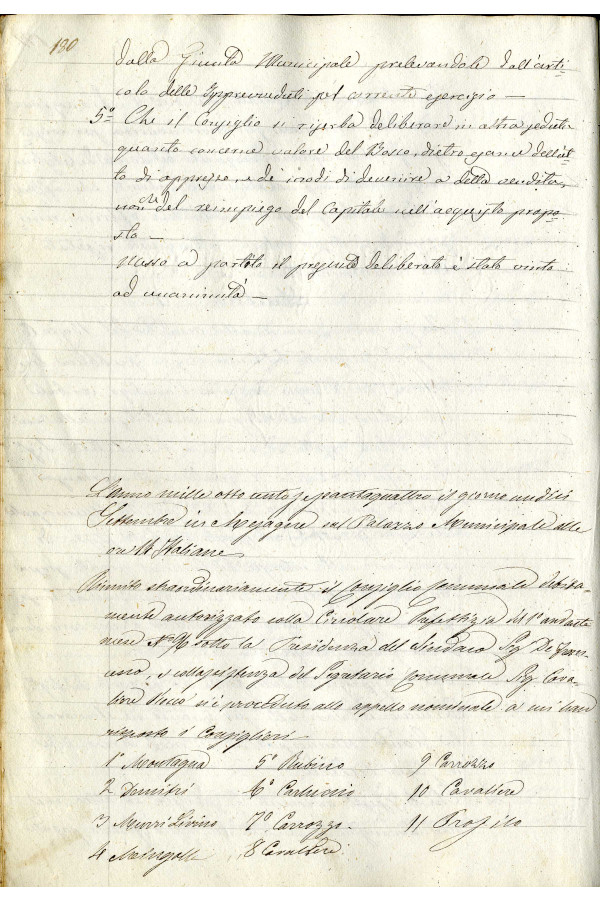 190
dalla Giunta Municipale prelevandole dall'arti=
colo delle Impreviste pel corrente esercizio —
5º Che il Consiglio si riserba deliberare in altra seduta
quanto concerne valore del Bosco, dietro esame dell'at=
to di apprezzo, e de' modi di devenire a detta vendita,
non che del reimpiego del Capitale nell'acquisto propo=
sto —
Messo a partito il presente deliberato è stato vinto
ad unanimità —
L'anno mille otto cento settantaquattro il giorno undici
Settembre in Mesagne sul Palazzo Municipale alle
ore Italiane
Riunito straordinariamente il Consiglio Comunale debita=
mente autorizzato colla Circolare Prefettizia del 1º andante
mese Nº sotto la Presidenza del Sindaco Sig. De Fran=
cesco, e coll'assistenza del Segretario Comunale Sig. Cava=
liere si è proceduto allo appello nominale a cui han
risposto i Consiglieri
1º Montagna 5º Rubino 9 Carrozzo
2 Demitri 6º 10 Cavaliere
3 Murri Livino 7º Carrozzo 11 Profilo
4 8 Cavaliere